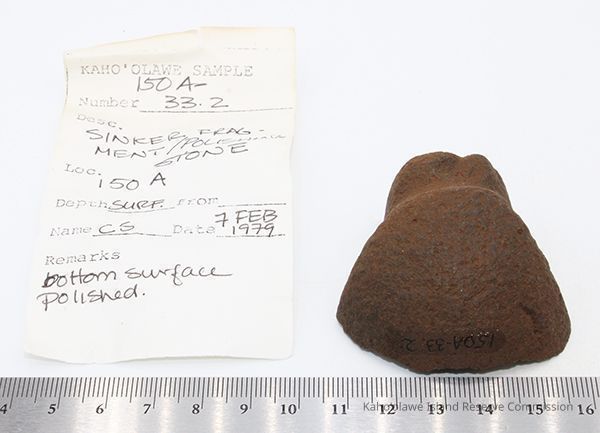 KAHO'OLAWE SAMPLE
150A-
Number 33.2
Desc.
SINKER FRAG-
MENT/POLISHING
STONE
Loc.
150 A
Depth SURF. from
7 FEB
Name C.S. Date 1979
Remarks
bottom surface
polished.
150A-33.2
4 5 6 7 8 9 10 11 12 13 14 15 16
Kaho'olawe Island Reserve Commission